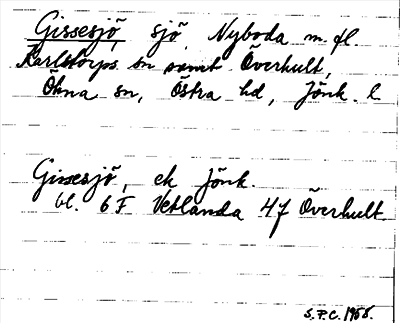 Gissesjö, sjö, Nyboda m. fl.
Karlstorps sn samt Överhult,
Ökna sn, Östra hd, Jönk. l
Gissesjö, ek Jönk.
bl. 6F Vetlanda 4f Överhult
S.F.C. 1958.